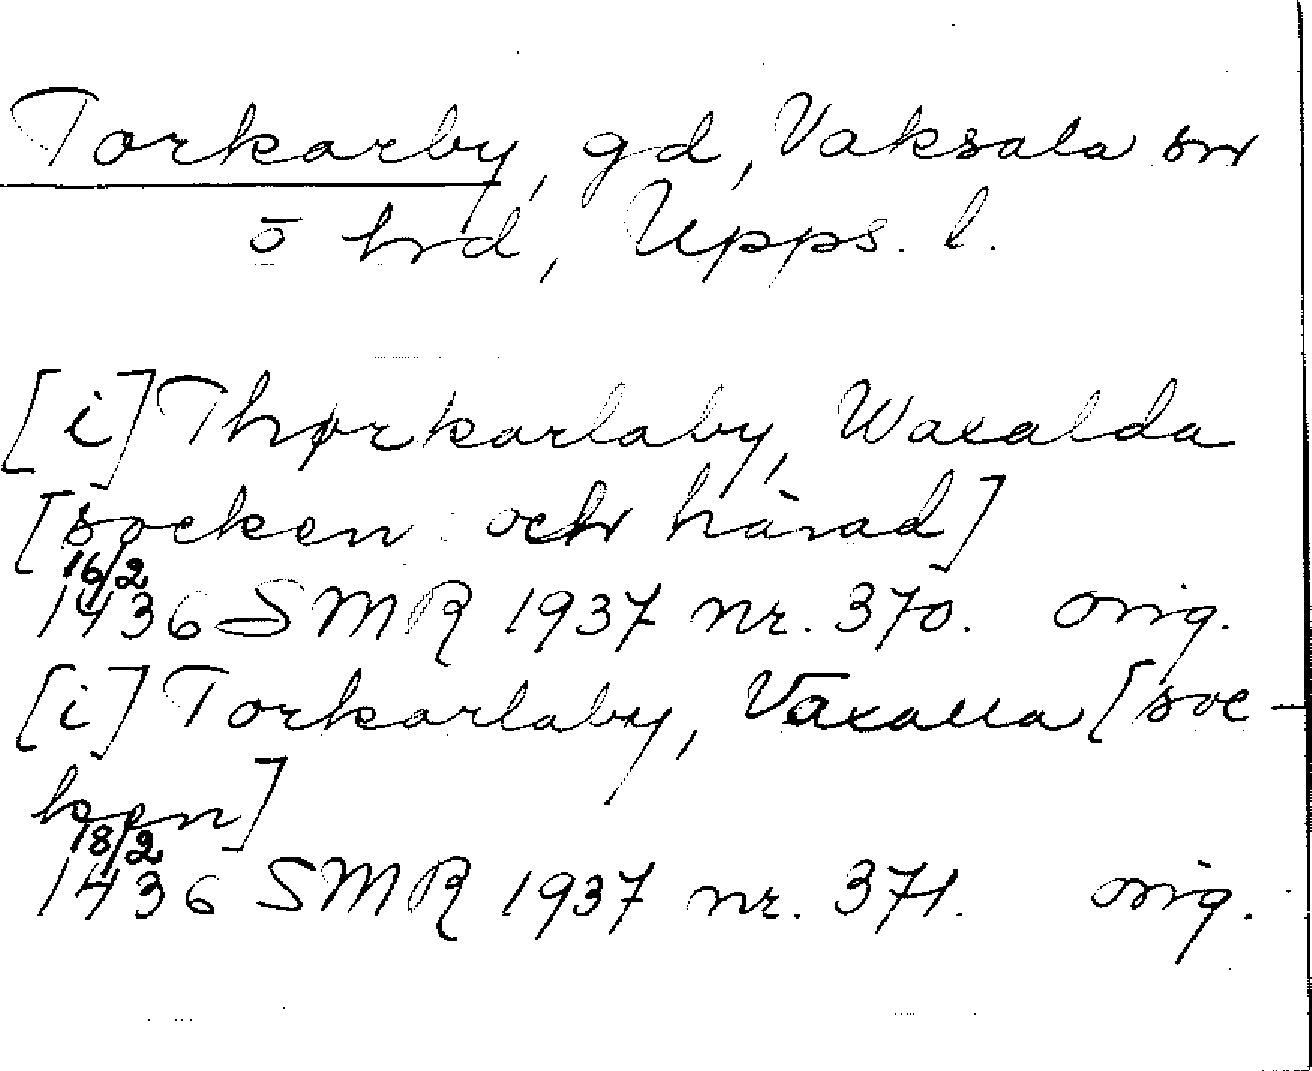 Torkarby, gd, Vaksala sn
o hrd, Upps. l.
[i] Thørkarlaby, Waxalda
[socken och härad]
16/2
1436 SMR 1937 nr. 370. orig.
[i] Torkarlaby, Vaxalla [soc-
ken]
18/2
1436 SMR 1937 nr. 371. orig.